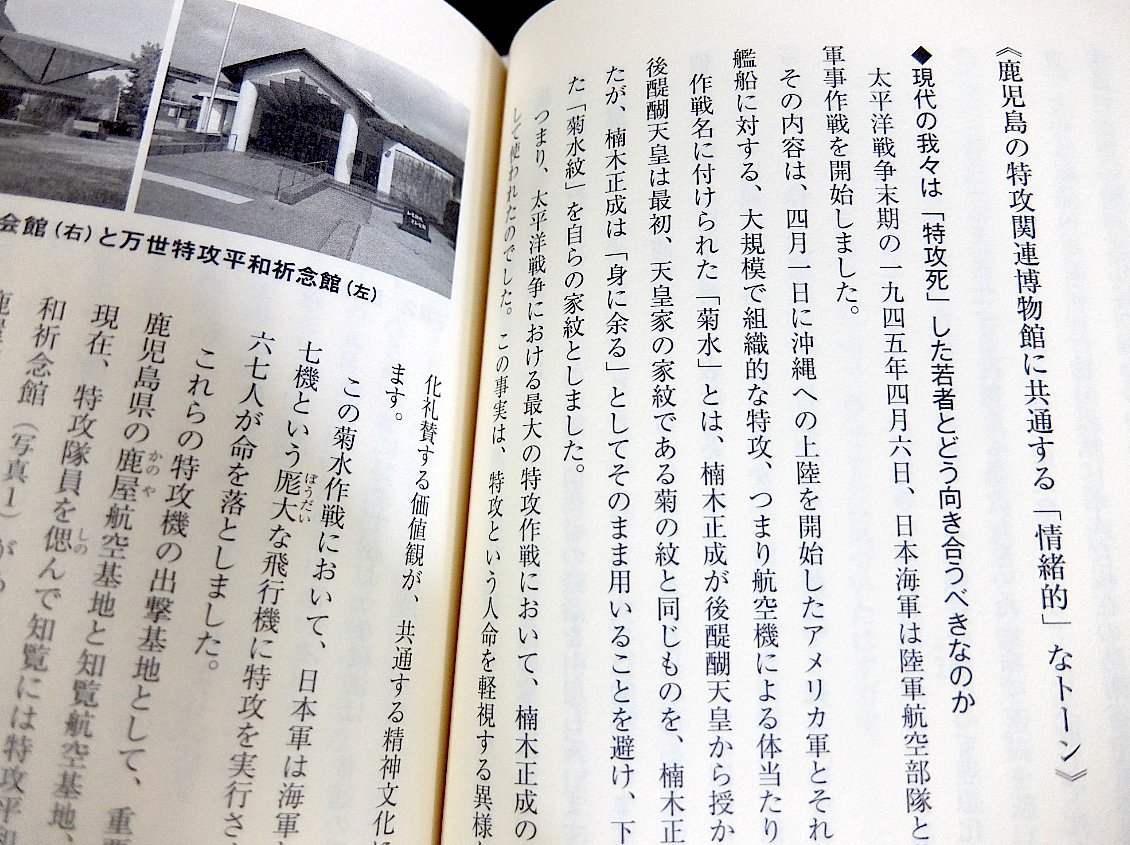 《鹿児島の特攻関連博物館に共通する「情緒的」なトーン》
◆現代の我々は「特攻死」した若者とどう向き合うべきなのか
太平洋戦争末期の一九四五年四月六日、日本海軍は陸軍航空部隊と
軍事作戦を開始しました。
その内容は、四月一日に沖縄への上陸を開始したアメリカ軍とそれ
艦船に対する、大規模で組織的な特攻、つまり航空機による体当たり
作戦名に付けられた「菊水」とは、楠木正成が後醍醐天皇から授か
後醍醐天皇は最初、天皇家の家紋である菊の紋と同じものを、楠木正
たが、楠木正成は「身に余る」としてそのまま用いることを避け、下
た「菊水紋」を自らの家紋としました。
つまり、太平洋戦争における最大の特攻作戦において、楠木正成の
して使われたのでした。この事実は、特攻という人命を軽視する異様
会館(右)と万世特攻平和祈念館(左)
化礼賛する価値観が、共通する精神文化
ます。
この菊水作戦において、日本軍は海軍
七機という厖大な飛行機に特攻を実行さ
ぼうだい
六七人が命を落としました。
これらの特攻機の出撃基地として、重
鹿児島県の鹿屋航空基地と知覧航空基地、
かのや
現在、特攻隊員を偲んで知覧には特攻平和
しの
和祈念館(写真1)が